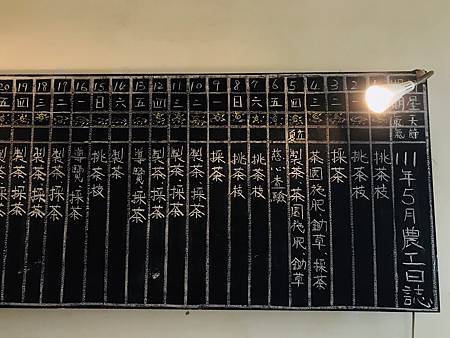 111年5月農工日誌
挑茶枝
挑茶枝
3 二 採茶
4 三 茶園施肥、鋤草、採茶
5 四 製茶、茶園施肥、鋤草
6 五 慈心查驗
7 六 挑茶枝
8 日 挑茶枝
9 一 採茶
10 二 製茶、採茶
11 三 製茶、採茶
12 四 製茶、採茶
13 五 導覽、採茶
14 六 製茶
15 日 挑茶枝
16 一 導覽、採茶
17 二 製茶、採茶
18 三 製茶、採茶
19 四 製茶、採茶
20 五 製茶、採茶